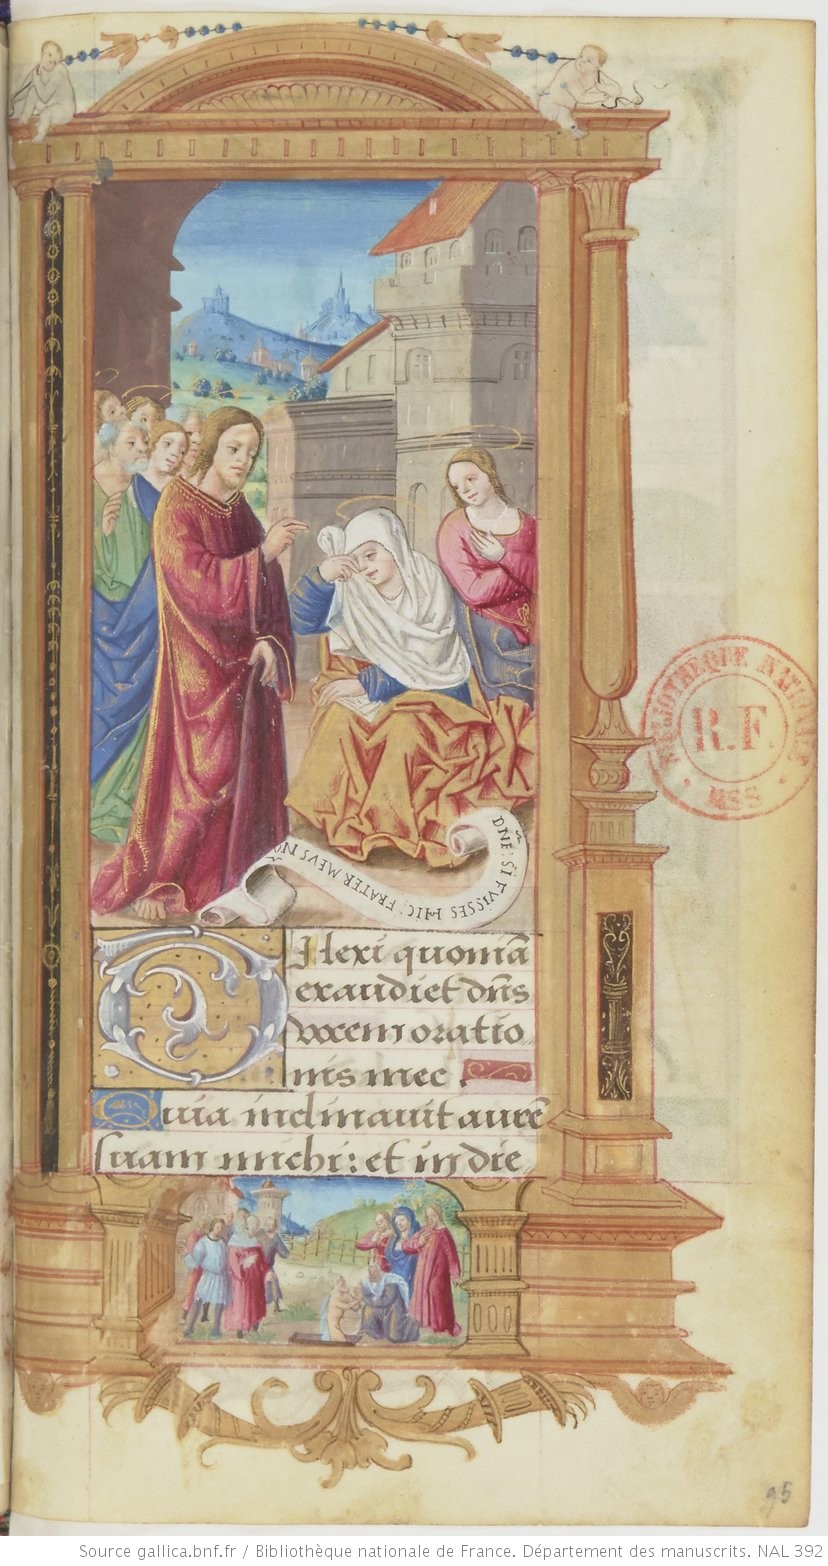 DN̄E: SI FVISSES HIC: FRATER MEVS NŌ
BIBLIOTHÈQUE NATIONALE
R.F.
MSS
Dilexi quoniā
exaudiet dn̄s
vocem oratio
nis mee.
Quia inclinauit aurē
suam michi: et in die
95
Source gallica.bnf.fr / Bibliothèque nationale de France. Département des manuscrits. NAL 392